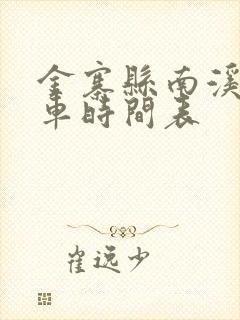 金寨縣南溪
車時間表
崔逸少